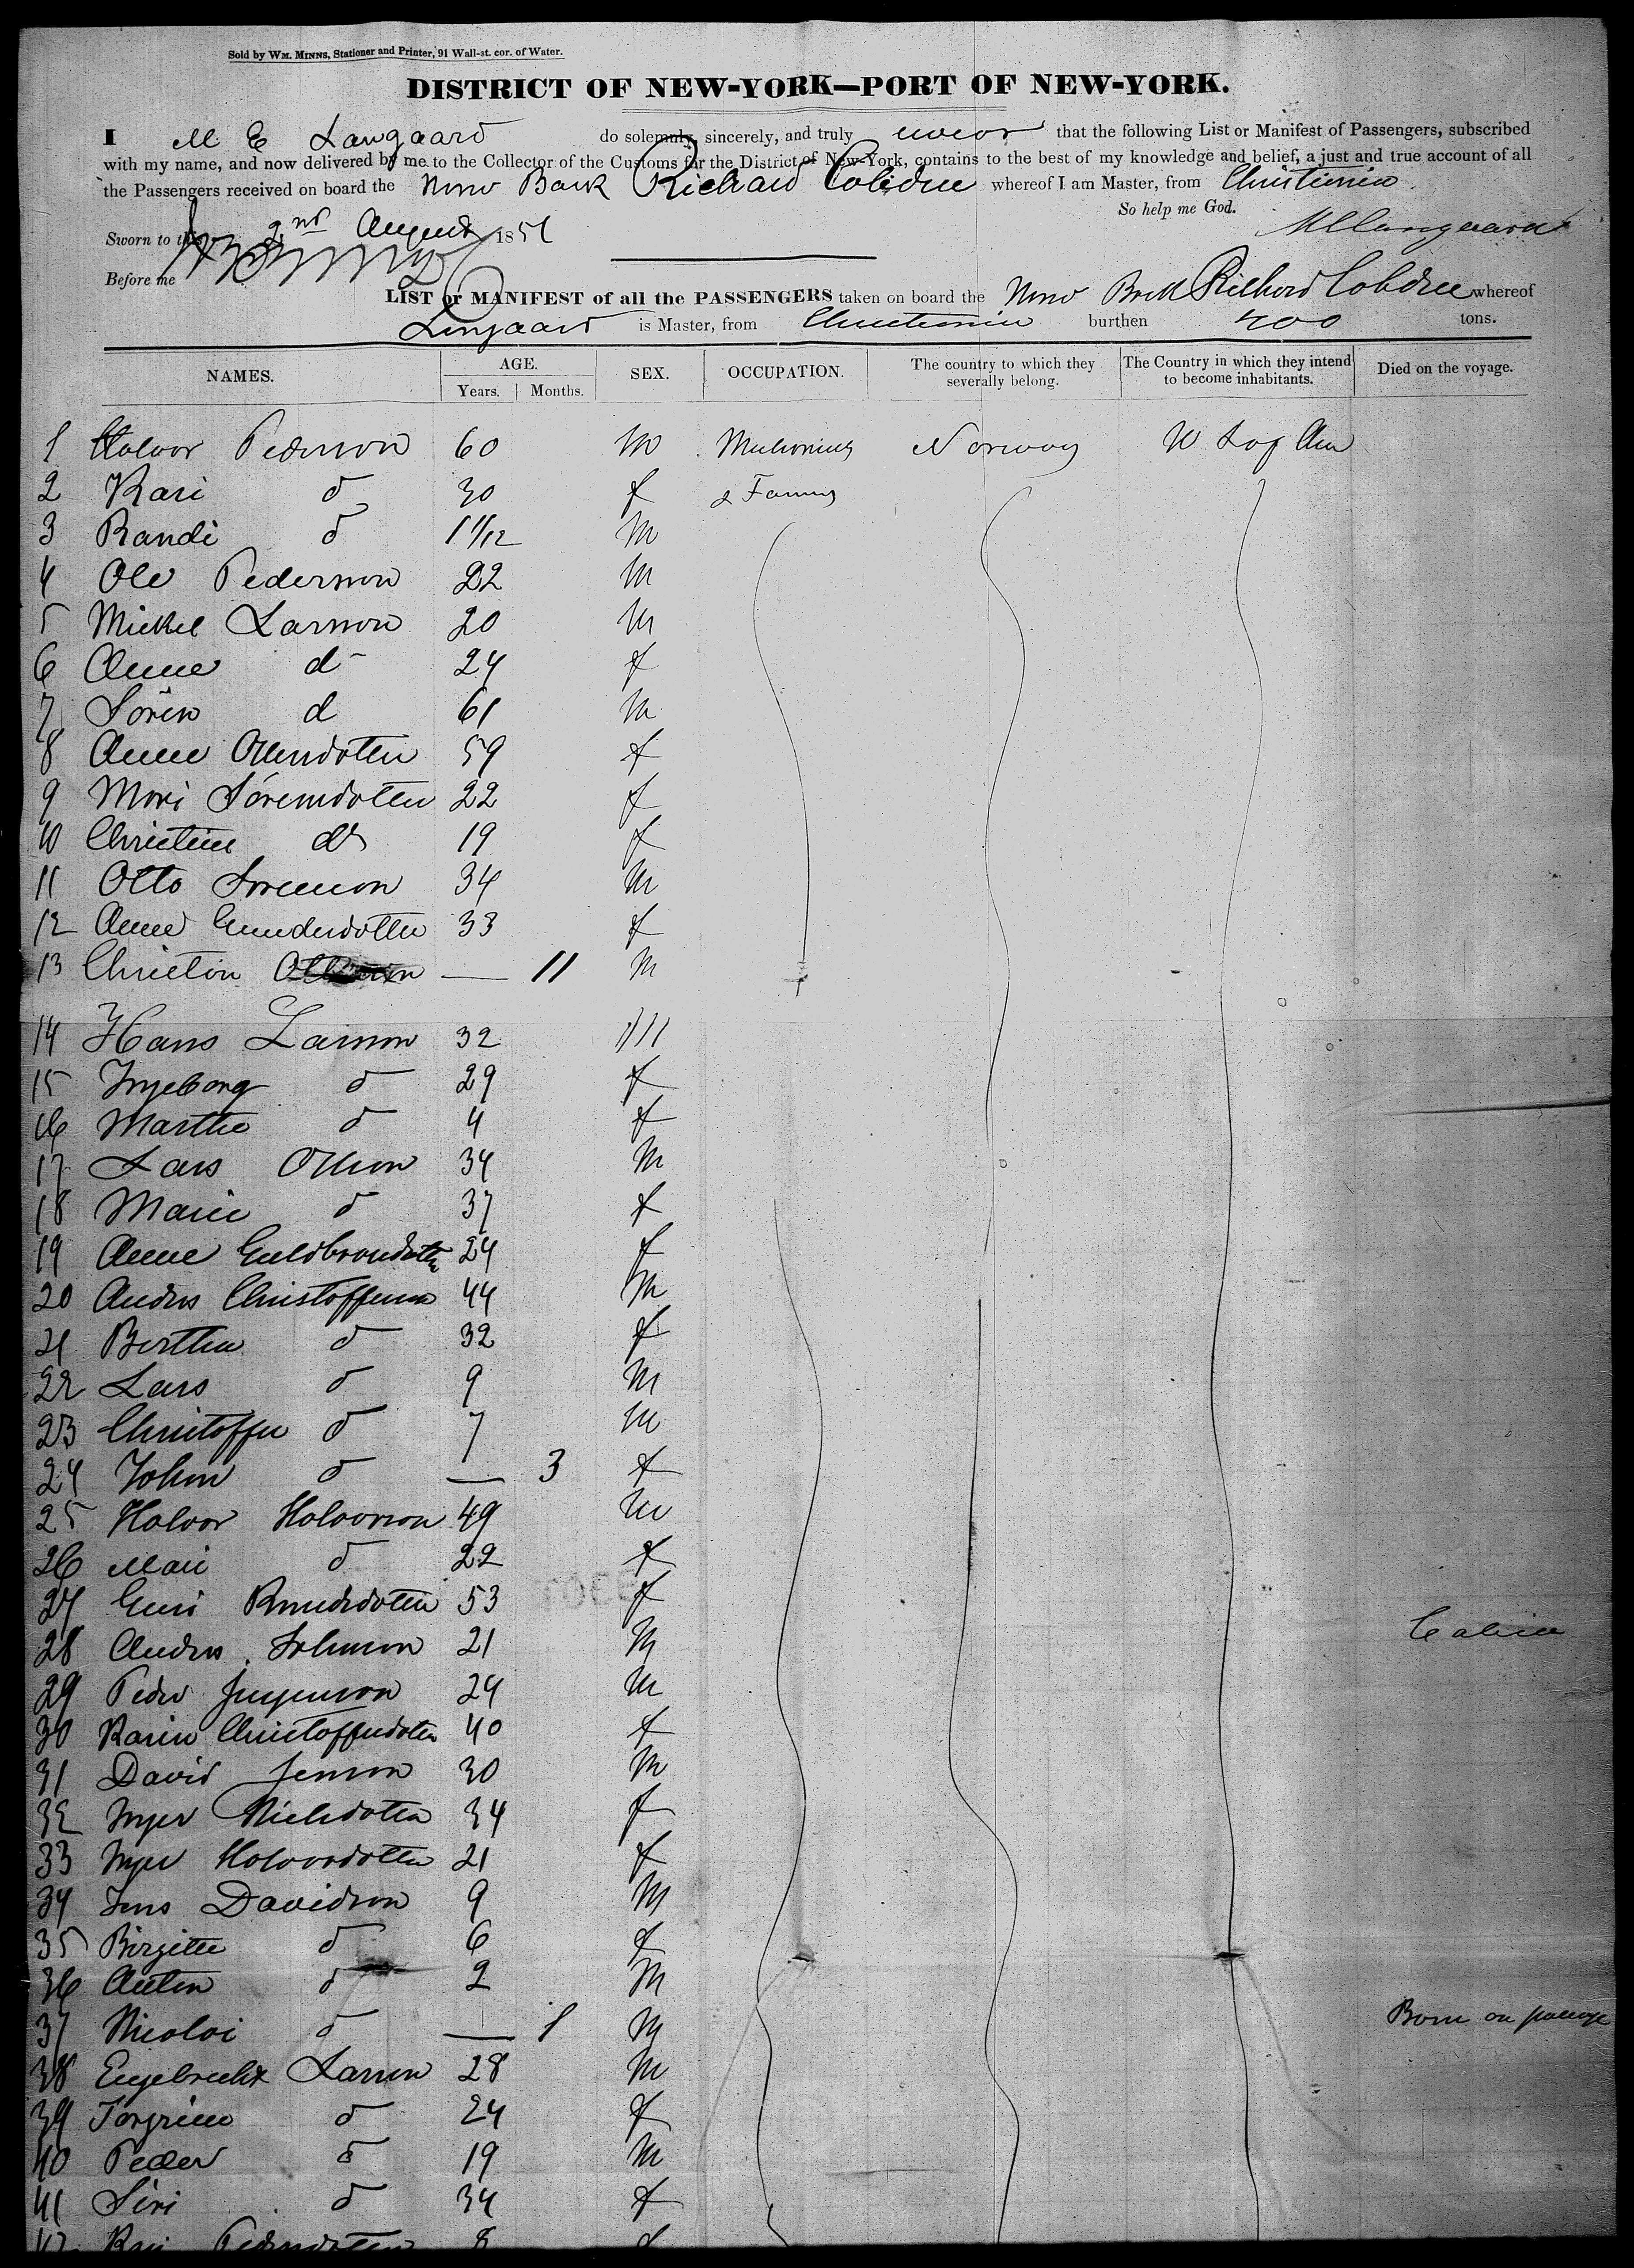 Sold by WM. MINNS, Stationer and Printer, 91 Wall-st. cor. of Water.
DISTRICT OF NEW-YORK—PORT OF NEW-YORK.
I M E Langaard do solemnly, sincerely, and truly swear that the following List or Manifest of Passengers, subscribed
with my name, and now delivered by me to the Collector of the Customs for the District of New-York, contains to the best of my knowledge and belief, a just and true account of all
the Passengers received on board the Norw Bark Richard Cobden whereof I am Master, from Christiania.
So help me God.
Sworn to this 2nd August 1851 MELangaard
Before me
LIST or MANIFEST of all the PASSENGERS taken on board the Norw Bark Richard Cobden whereof
Langaard is Master, from Christiania burthen 400 tons.
NAMES. AGE. Years. Months. SEX. OCCUPATION. The country to which they severally belong. The Country in which they intend to become inhabitants. Died on the voyage.
1 Halvor Pederson 60 M Mechanics Norway U S of Am
2 Kari do 30 f & Farmers
3 Randi do 1 1/12 M
4 Ole Pederson 22 M
5 Mickel Larson 20 M
6 Anne do 24 f
7 Sören do 61 M
8 Anne Olsendotter 59 f
9 Mari Sörensdotter 22 f
10 Christine do 19 f
11 Otto Sorenson 34 M
12 Anne Gundersdotter 33 f
13 Christian — 11 M
14 Hans Larson 32 M
15 Ingeborg do 29 f
16 Marthe do 4 f
17 Lars Olson 34 M
18 Marie do 37 f
19 Anne Guldbrandsdotter 24 f
20 Andrs Christofferson 44 M
21 Berthe do 32 f
22 Lars do 9 M
23 Christoffer do 7 M
24 Johan do — 3 f
25 Halvor Halvorson 49 M
26 Mari do 22 f
27 Guri Knudsdotter 53 f
28 Andrs Johnson 21 M Cabin
29 Peder Jurgenson 24 M
30 Karen Christoffersdotter 40 f
31 David Jenson 30 M
32 Inger Nielsdotter 34 f
33 Inger Halvorsdotter 21 f
34 Jens Davidson 9 M
35 Birgitte do 6 f
36 Anton do 2 M
37 Nicolai do — 1 M Born on passage
38 Engebrecht Larson 28 M
39 Torgrine do 24 f
40 Peder do 19 M
41 Siri do 34 f
42 Pedersdotter 8 f